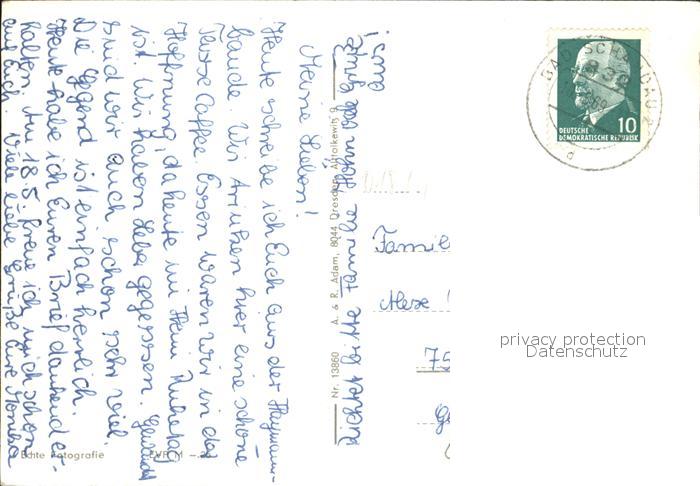 Meine Lieben!
Heute schreibe ich Euch aus der Haymann-
baude. Wir trinken hier eine schöne
Tasse Kaffee. Essen waren wir in der
Hoffnung, da heute im Heim Ruhetag
ist. Wir haben Leber gegessen. Gewandert
sind wir auch schon sehr viel.
Die Gegend ist einfach herrlich.
Heute habe ich Euren Brief dankend er-
halten. Am 18.5. freue ich mich schon
auf Euch. Viele liebe Grüße Eure Monika
Richtet bitte Familie Höhn auch
Grüße
aus!
Echte Fotografie
EVP M -.25
Nr. 13860 A. & R. Adam, 8044 Dresden, Altolkewitz 9
BAD SCHANDAU 2
DEUTSCHE
DEMOKRATISCHE REPUBLIK
10
Famil
75
privacy protection
Datenschutz